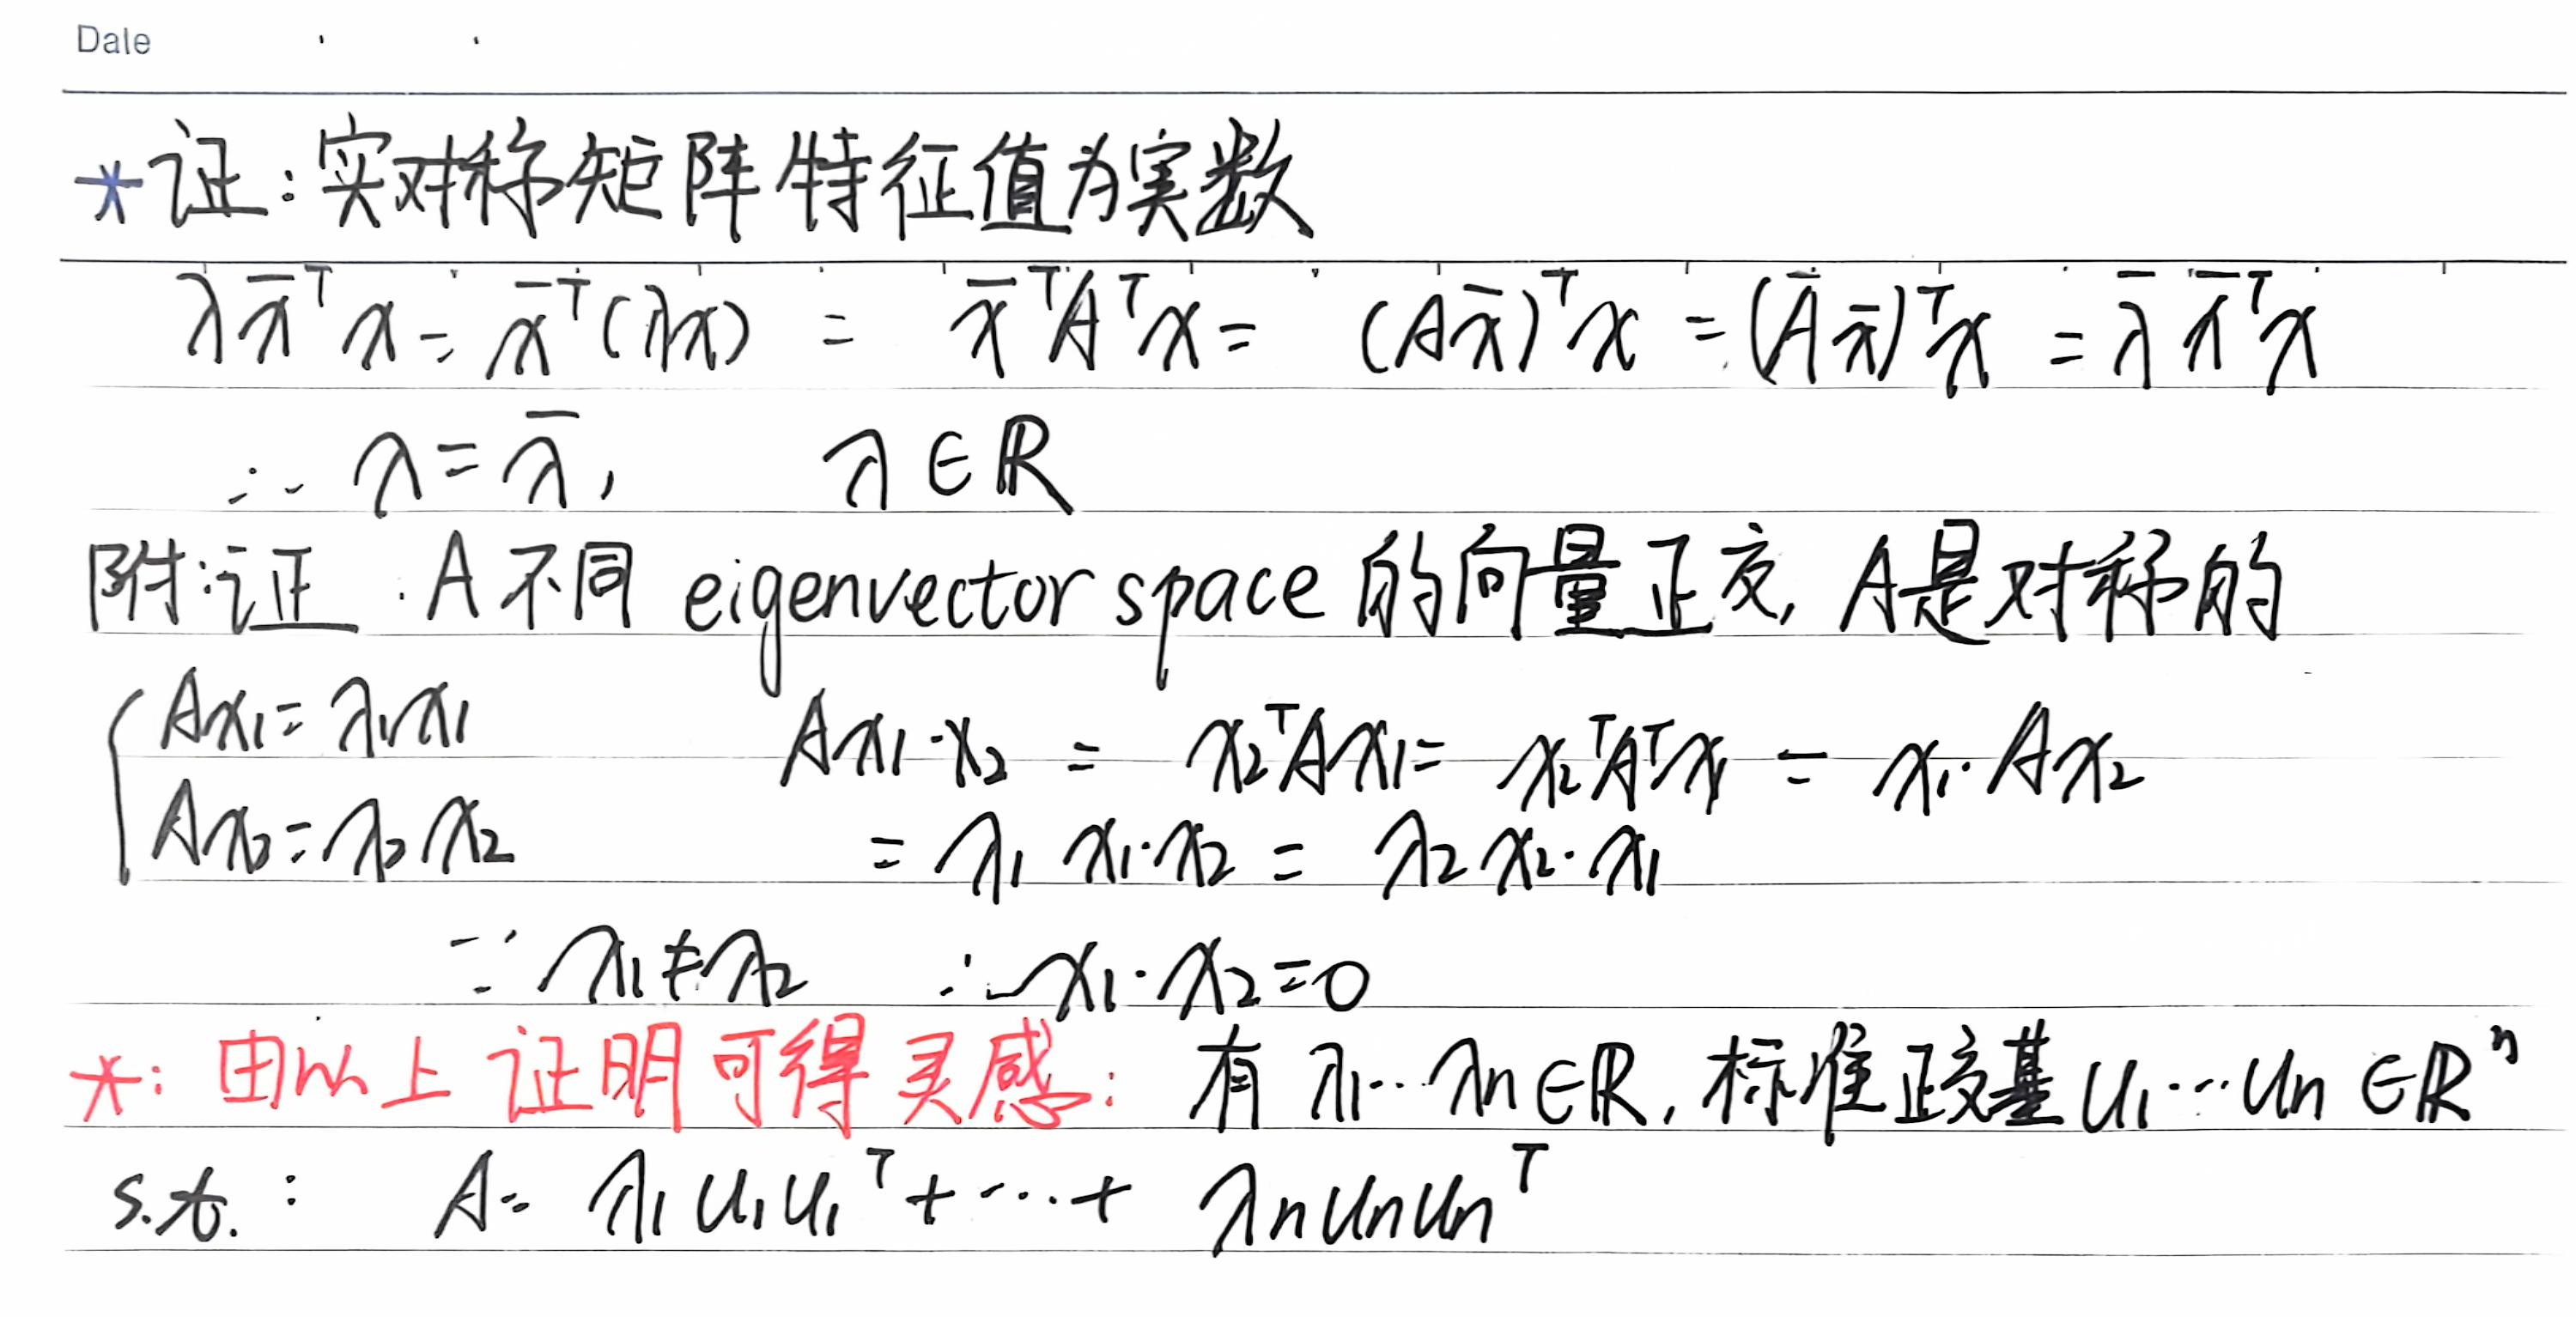 Date
*证:实对称矩阵特征值为实数
λx̄ᵀx = x̄ᵀ(λx) = x̄ᵀAᵀx = (Ax̄)ᵀx = (Āx̄)ᵀx = λ̄x̄ᵀx
∴ λ = λ̄, λ∈ℝ
附:证:A不同 eigenvector space 的向量正交, A是对称的
{Ax₁=λ₁x₁ Ax₁·x₂ = x₂ᵀAx₁ = x₂ᵀAᵀx₁ = x₁·Ax₂
Ax₂=λ₂x₂ = λ₁x₁·x₂ = λ₂x₂·x₁
∵ λ₁≠λ₂ ∴ x₁·x₂=0
*: 由以上证明可得灵感: 有 λ₁…λn∈ℝ, 标准正交基 u₁…un∈ℝⁿ
s.t.: A = λ₁u₁u₁ᵀ+…+λnununᵀ